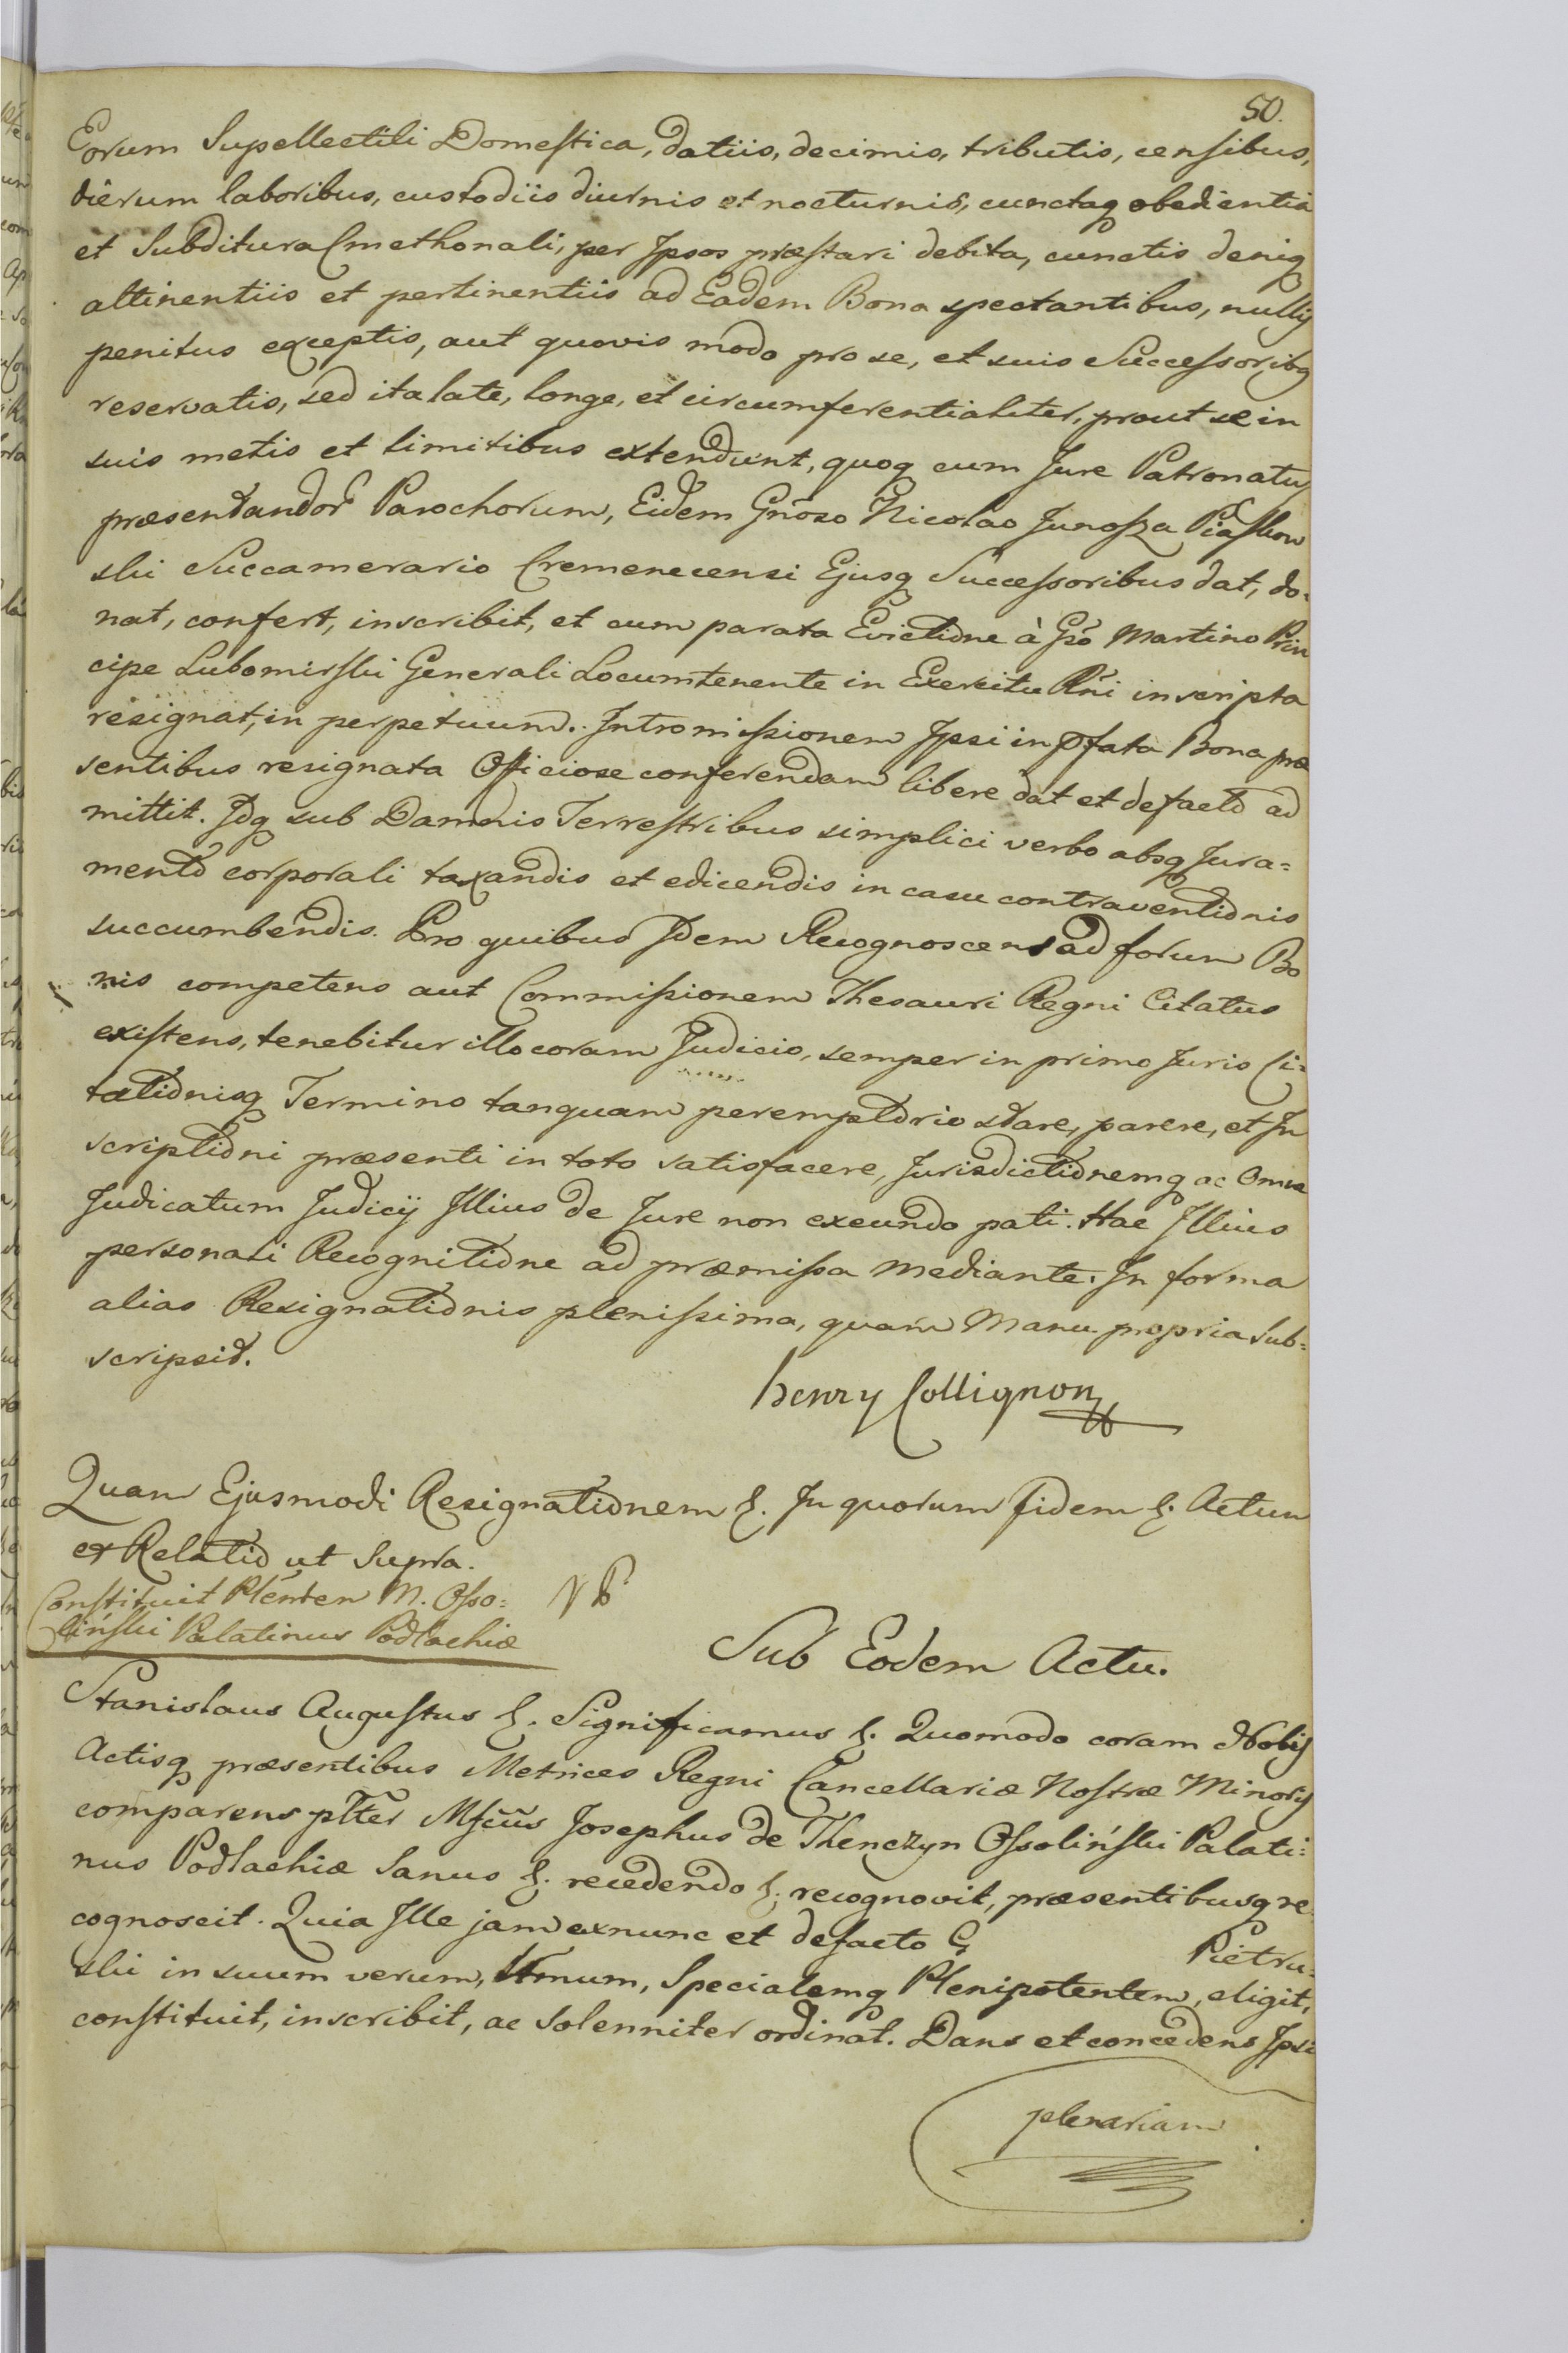 50.
Eorum Supellectili Domestica, datiis, decimis, tributis, censibus,
dierum laboribus, custodiis diurnis et nocturnis, cunctaq obedientia
et Subditura Cmethonali, per Ipsos præstari debita, cunctis deniq
attinentiis et pertinentiis ad Eadem Bona spectantibus, nullis
penitus exceptis, aut quovis modo pro se, et suis Successoribq
reservatis, sed ita late, longe, et circumferentialiter, prout se in
suis metis et limitibus extendunt, quoq cum Jure Patronatus
præsentandor Parochorum, Eidem Gnoso Nicolao Junosza Piaskow
ski Succamerario Cremenecensi Ejusq Successoribus dat, do:
nat, confert, inscribit, et cum parata Evictione à Gso Martino Prin
cipe Lubomirski Generali Locumtenente in Exercitu Rni inscripta
resignat, in perpetuum. Intromissionem Ipsi in Pfata Bona præ
sentibus resignata Officiose conferendam libere dat et defacto ad
mittit. Idq sub Damnis Terrestribus simplici verbo absq Jura=
mento corporali taxandis et edicendis in casu contraventionis
succumbendis. Pro quibus Idem Recognoscens ad forum Bo
nis competens aut Commissionem Thesauri Regni Citatus
existens, tenebitur illo coram Judicio, semper in primo Juris Ci=
tationisq Termino tanquam peremptorio stare, parere, et In
scriptioni præsenti in toto satisfacere, Jurisdictionemq ac Omne
Judicatum Judicij Illius de Jure non exeundo pati. Hac Illius
personali Recognitione ad præmissa mediante. In forma
alias Resignationis plenissima, quam Manu propria Sub=
scripsit.
henry Collignon
Quam Ejusmodi Resignationem &. In quorum fidem &. Actum
ex Relatio ut Supra.
Constituit Plénten M. Osso=
liński Palatinus Podlachiæ
Sub Eodem Actu.
Stanislaus Augustus &. Significamus &. Quomodo coram Nobis
Actisq præsentibus Metrices Regni Cancellariæ Nostræ Minoris
comparens pltter Mfcus Josephus de Thenczyn Ossoliński Palati:
nus Podlachiæ Sanus &. recedendo &. recognovit, præsentibusq re
cognoscit. Quia Ille jam exnunc et defacto G. Pietru=
ski in suum verum, Ltmum, Specialemq Plenipotentem, eligit,
constituit, inscribit, ac Solenniter ordinat. Dans et concedens Ipsi
plenariam